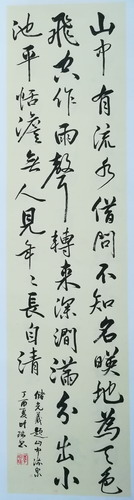 山中有流水借問不知名暎地為天色
飛空作雨聲轉來深澗滿分出小
池平恬澹無人見年々長自清
儲光羲題山中流泉
丁酉夏